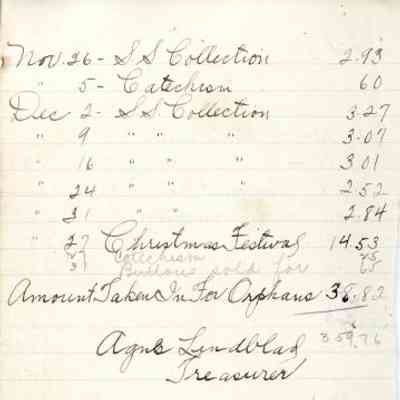 Nov. 26 - S S Collection 2.93
" 5 - Catechism 60
Dec 2 - S S Collection 3.27
" 9 " " " 3.07
" 16 " " " 3 01
" 24 " " " 2.52
" 31 " " 2.84
" 27 Christmas Festival 14.53
Catechism
31 Buttons sold for 65
Amount Taken In For Orphans 38.82
Agnes Lindblad
Treasurer